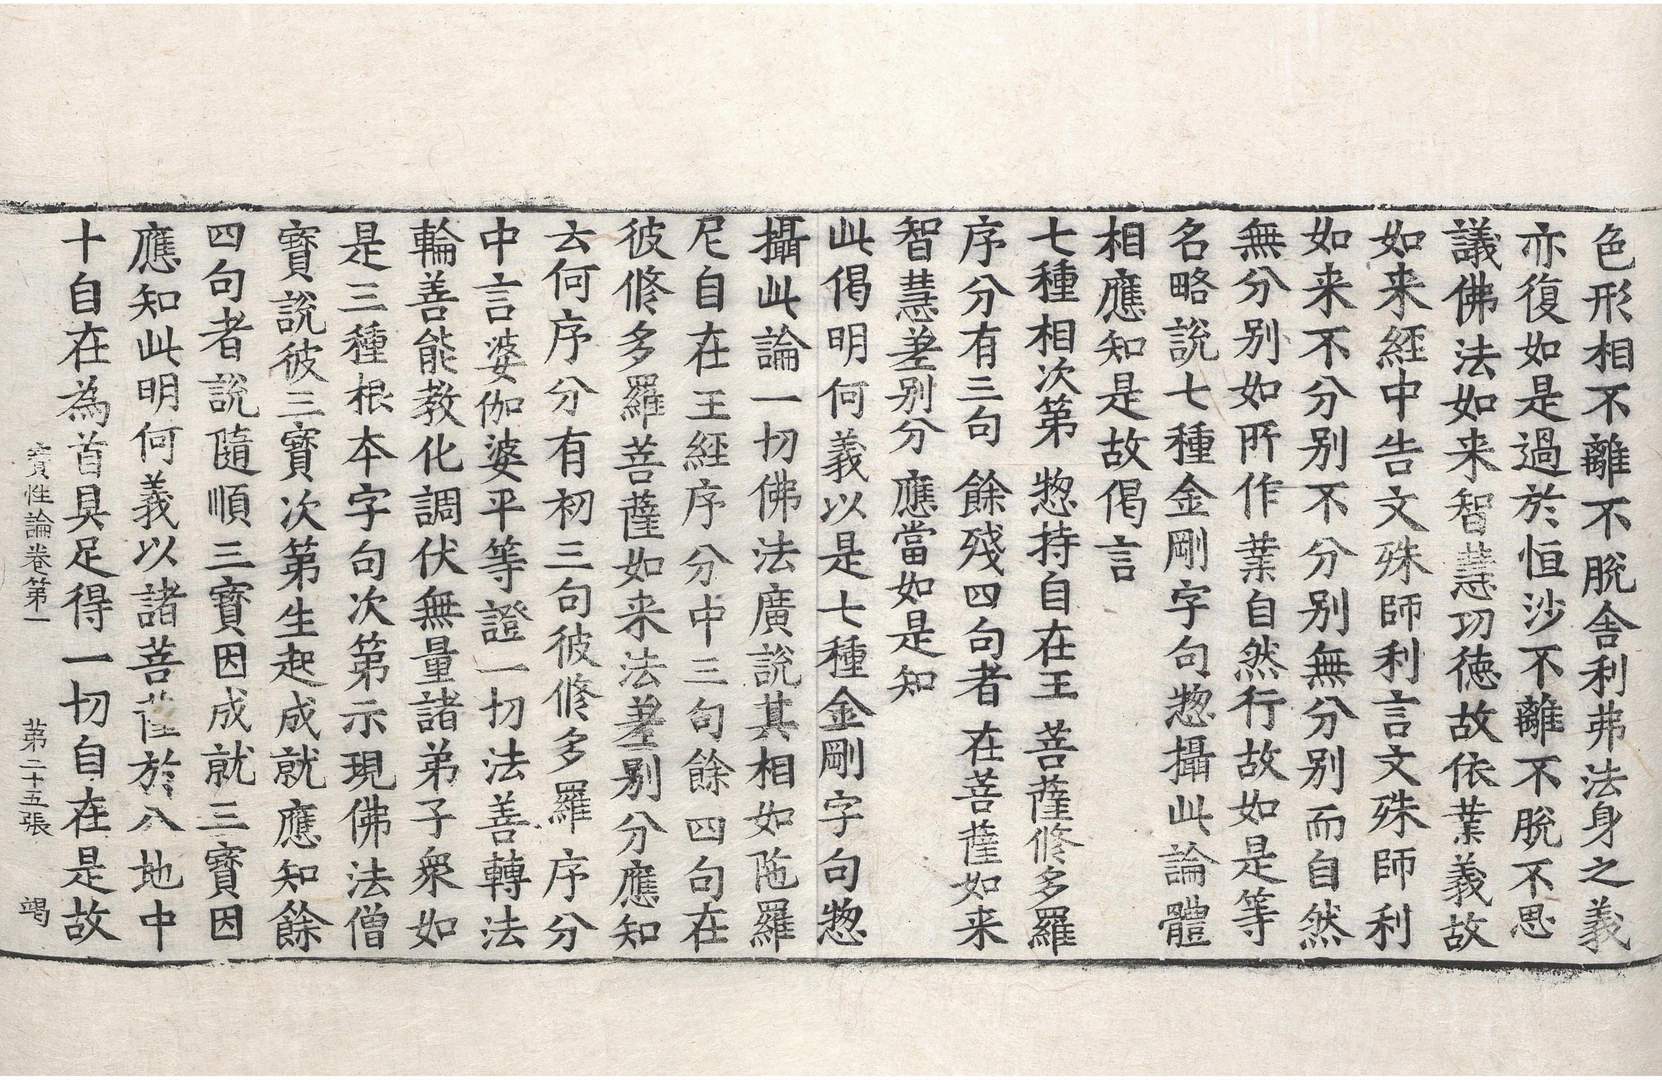 色形相不離不脫舍利弗法身之義
亦復如是過於恒沙不離不脫不思
議佛法如来智慧功徳故依業義故
如来經中告文殊師利言文殊師利
如来不分别不分别無分别而自然
無分别如所作業自然行故如是等
名略説七種金剛字句惣攝此論體
相應知是故偈言
七種相次第 惣持自在王 菩薩修多羅
序分有三句 餘殘四句者 在菩薩如来
智慧差别分 應當如是知
此偈明何義以是七種金剛字句惣
攝此論一切佛法廣説其相如陁羅
尼自在王經序分中三句餘四句在
彼修多羅菩薩如来法差别分應知
云何序分有初三句彼修多羅序分
中言婆伽婆平等證一切法善轉法
輪善能教化調伏無量諸弟子衆如
是三種根本字句次第示現佛法僧
寶説彼三寶次第生起成就應知餘
四句者説隨順三寶因成就三寶因
應知此明何義以諸菩薩於八地中
十自在為首具足得一切自在是故
寶性論卷第一 第二十五張 竭